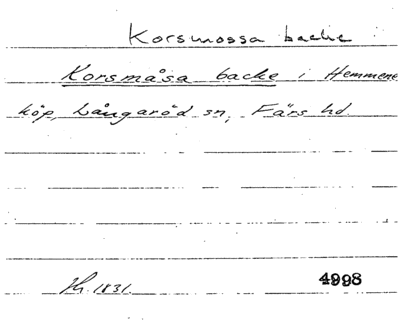 Korsmossa backe
Korsmåsa backe i Hemmene
köp, Långaröd sn, Färs hd
Jh. 1831. 4998